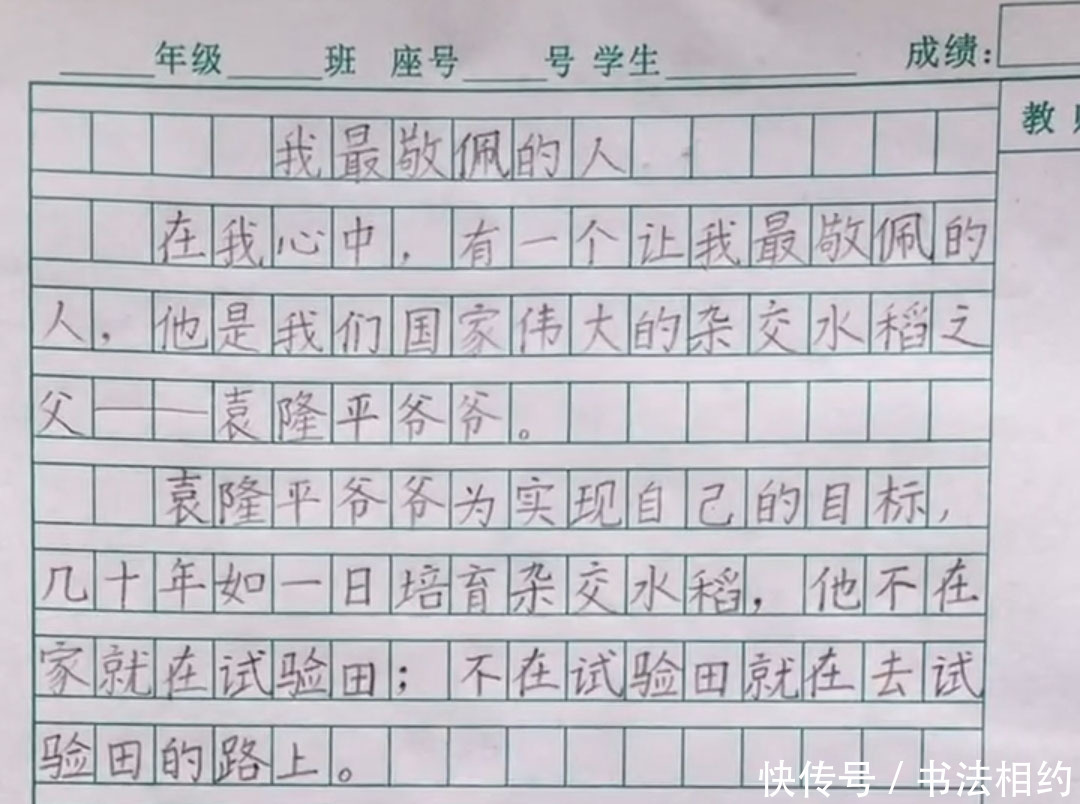 ____年级____班 座号____号 学生________ 成绩:
教
我最敬佩的人
在我心中，有一个让我最敬佩的
人，他是我们国家伟大的杂交水稻之
父——袁隆平爷爷。
袁隆平爷爷为实现自己的目标，
几十年如一日培育杂交水稻，他不在
家就在试验田；不在试验田就在去试
验田的路上。
快传号 / 书法相约